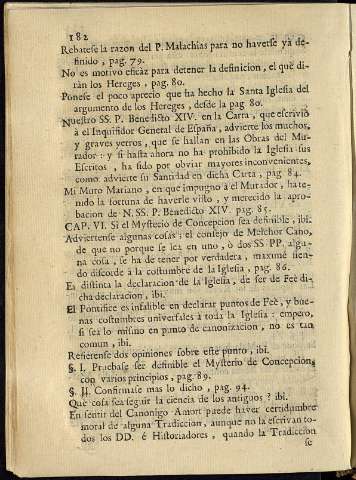 182
Rebatese la razon del P. Malachias para no haverse yá de-
finido, pag. 79.
No es motivo eficáz para detener la definicion, el què di-
ràn los Hereges, pag. 80.
Ponese el poco aprecio que ha hecho la Santa Iglesia del
argumento de los Hereges, desde la pag 80.
Nuestro SS. P. Benedicto XIV. en la Carta, que escriviò
à el Inquisidor General de España, advierte los muchos,
y graves yerros, que se hallan en las Obras del Mu-
rador: y si hasta ahora no ha prohibido la Iglesia sus
Escritos, ha sido por obviar mayores inconvenientes,
como advierte su Santidad en dicha Carta, pag 84.
Mi Muro Mariano, en que impugno à el Murador, ha te-
nido la fortuna de haverle visto, y merecido la apro-
bacion de N. SS. P. Benedicto XIV. pag. 85.
CAP. VI. Si el Mysterio de Concepcion sea definible, ibi.
Adviertense algunas cosas: el consejo de Melchor Cano,
de que no porque se lea en uno, ò dos SS PP. algu-
na cosa, se ha de tener por verdadera, maxime sien-
do discorde à la costumbre de la Iglesia, pag. 86.
Es distinta la declaracion de la Iglesia, de ser de Feè di-
cha declaracion, ibi.
El Pontifice es infalible en declarar puntos de Feè, y bue-
nas costumbres universales à toda la Iglesia: empero,
si sea lo mismo en punto de canonizacion, no es tan
comun, ibi.
Refierense dos opiniones sobre este punto, ibi.
§. I. Pruebase ser definible el Mysterio de Concepcion,
con varios principios, pag. 89.
§. II. Confirmase mas lo dicho, pag. 94.
Què cosa sea seguir la ciencia de los antiguos? ibi.
En sentir del Canonigo Amort puede haver certidumbre
moral de alguna Tradiccion, aunque no la escrivan to-
dos los DD. é Historiadores, quando la Tradiccion
se